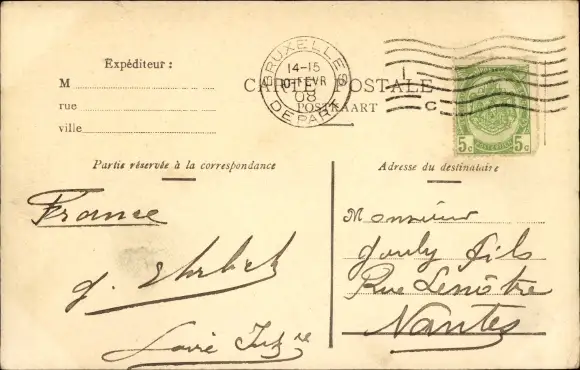 Expéditeur :
M
rue
ville
CARTE POSTALE
POSTKAART
BRUXELLES
14-15
FEVR
08
DEPART
1
C
5c 5c
Partie réservée à la correspondance
Adresse du destinataire
France
Monsieur
Fils
Rue Lenôtre
Nantes
Loire Infre